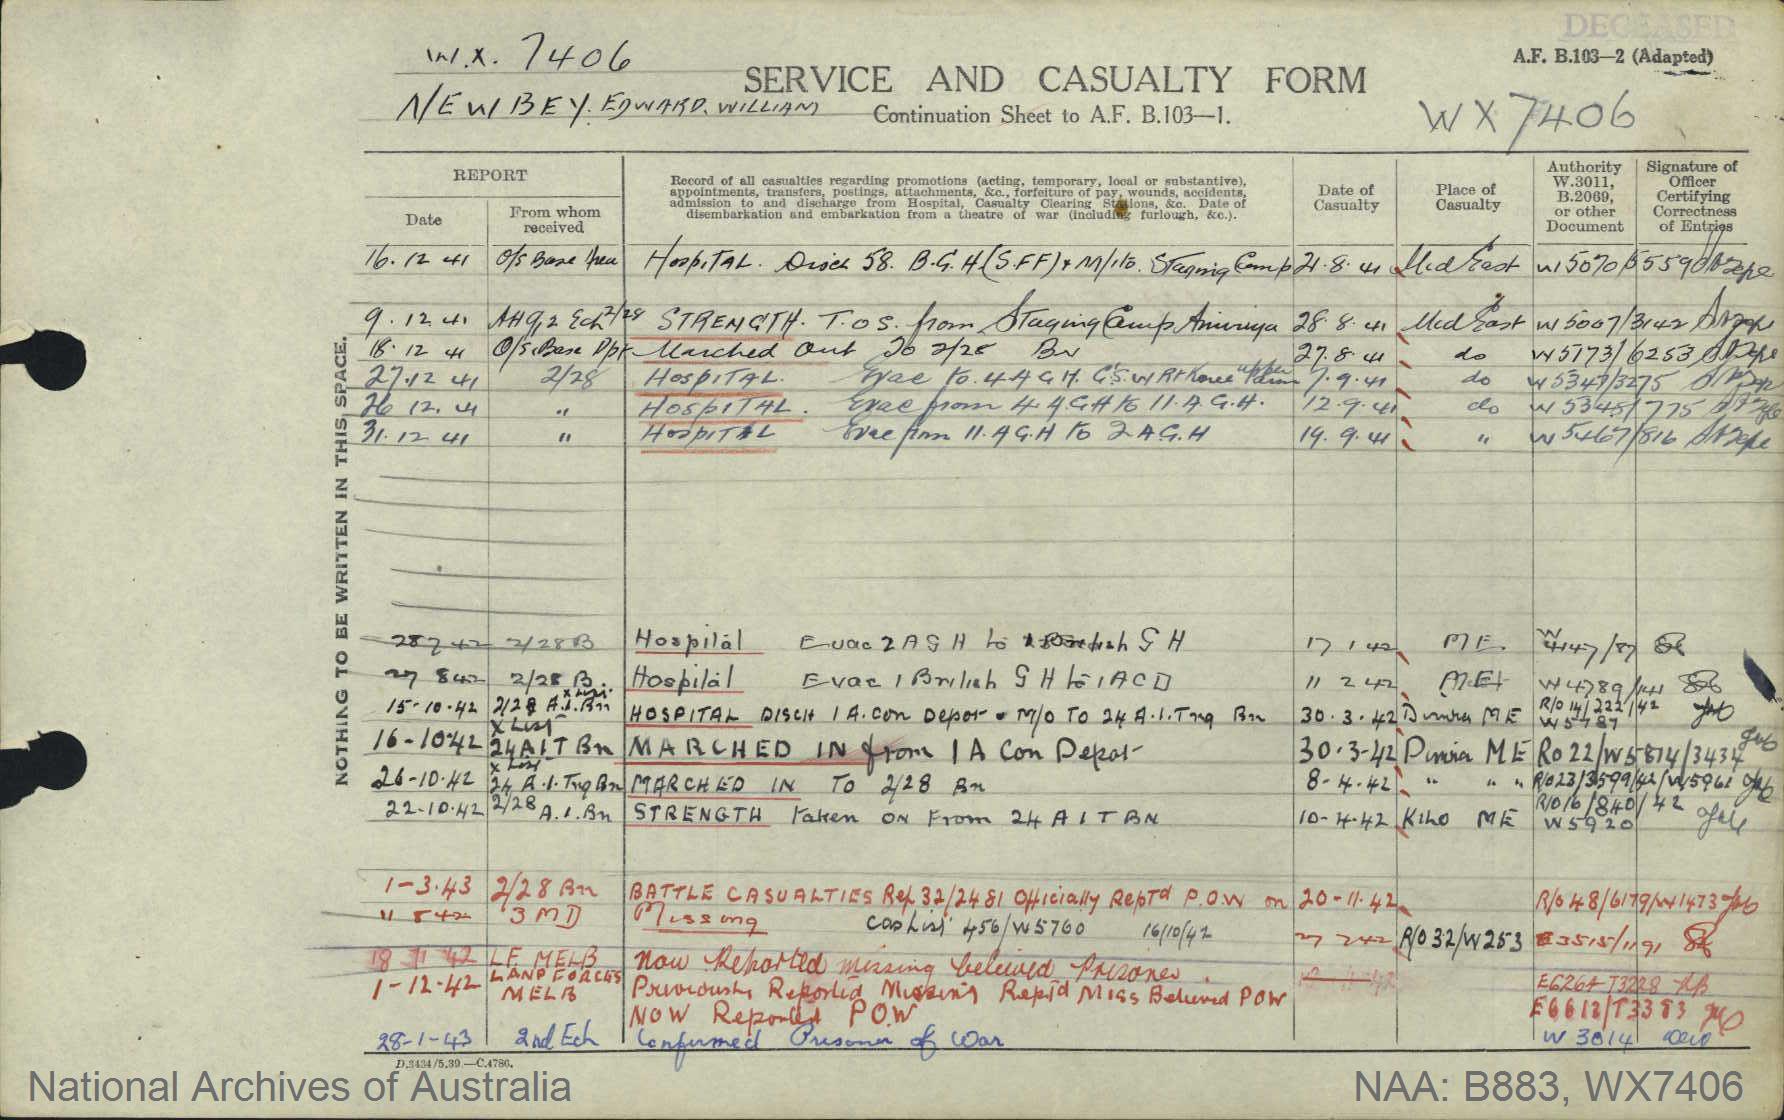 DECEASED
W.X. 7406
A.F. B.103—2 (Adapted)
SERVICE AND CASUALTY FORM
NEWBEY. EDWARD. WILLIAM
Continuation Sheet to A.F. B.103—1.
WX7406
REPORT
Date
From whom received
Record of all casualties regarding promotions (acting, temporary, local or substantive),
appointments, transfers, postings, attachments, &c., forfeiture of pay, wounds, accidents,
admission to and discharge from Hospital, Casualty Clearing Stations, &c. Date of
disembarkation and embarkation from a theatre of war (including furlough, &c.).
Date of Casualty
Place of Casualty
Authority W.3011, B.2069, or other Document
Signature of Officer Certifying Correctness of Entries
NOTHING TO BE WRITTEN IN THIS SPACE.
16. 12 41 O/S Base Area HOSPITAL. Disch 58. B.G.H (S.F.F) & M/I to. Staging Camp 21. 8. 41 Mid East W5070/5559
9. 12. 41 AHQ 2 Ech 2/28 STRENGTH. T.O.S. from Staging Camp Amiriya 28. 8. 41 Mid East W5007/3142
18. 12 41 O/S. Base Marched Out To 2/28 Bn 27. 8. 41 do W5173/6253
27. 12 41 2/28 HOSPITAL. Evac to. 4 A G H. G.S.W Rt Knee 7. 9. 41 do W5347/3275
26 12. 41 " HOSPITAL. Evac from 4 A G H to 11. A. G. H. 12. 9. 41 do W5345/775
31. 12 41 " HOSPITAL Evac from 11. A G. H to 2 A G. H 19. 9. 41 " W5467/816
28 7 42 2/28 B Hospital Evac 2 A G H to 1 British G H 17 1 42 M E. W 4147/87
27 8 42 2/28 B. Hospital Evac 1 British G H to 1 A C D 11 2 42 M.E. W4789/141
15-10-42 2/28 A.I. Bn X List. HOSPITAL DISCH 1 A. Con Depot & M/O TO 24 A.I. Trg Bn 30. 3. 42 Dimra ME R/O 14/222/42 W5787
16-10-42 X List 24 A I T Bn MARCHED IN from 1 A Con Depot 30-3-42 Dimra ME RO 22/W5814/3434
26-10-42 X List 24 A.I. Trg Bn MARCHED IN TO 2/28 Bn 8-4-42 " " " R/O 23/3599/42/W5961
22-10-42 2/28 A.I. Bn STRENGTH taken on from 24 A I T BN 10-4-42 Kilo ME R/O 16/840/42 W5920
1-3-43 2/28 Bn BATTLE CASUALTIES Ref 32/2481 Officially Reptd P.O.W on 20-11-42 R/O 48/6179/W1473
11 8 42 3 M D Missing Cas List 456/W5760 16/10/42 27 7 42 R/O 32/W253 E3515/1191
18 11 42 LF MELB Now Reported missing believed Prisoner.
E6264 T3228
1-12-42 LAND FORCES MELB Previously Reported Missing Reptd Miss Believed POW
NOW Reported P.O.W E6618/T3383
28-1-43 2nd Ech Confirmed Prisoner of War W 3014
D.3434/5.39.—C.4786.
National Archives of Australia
NAA: B883, WX7406